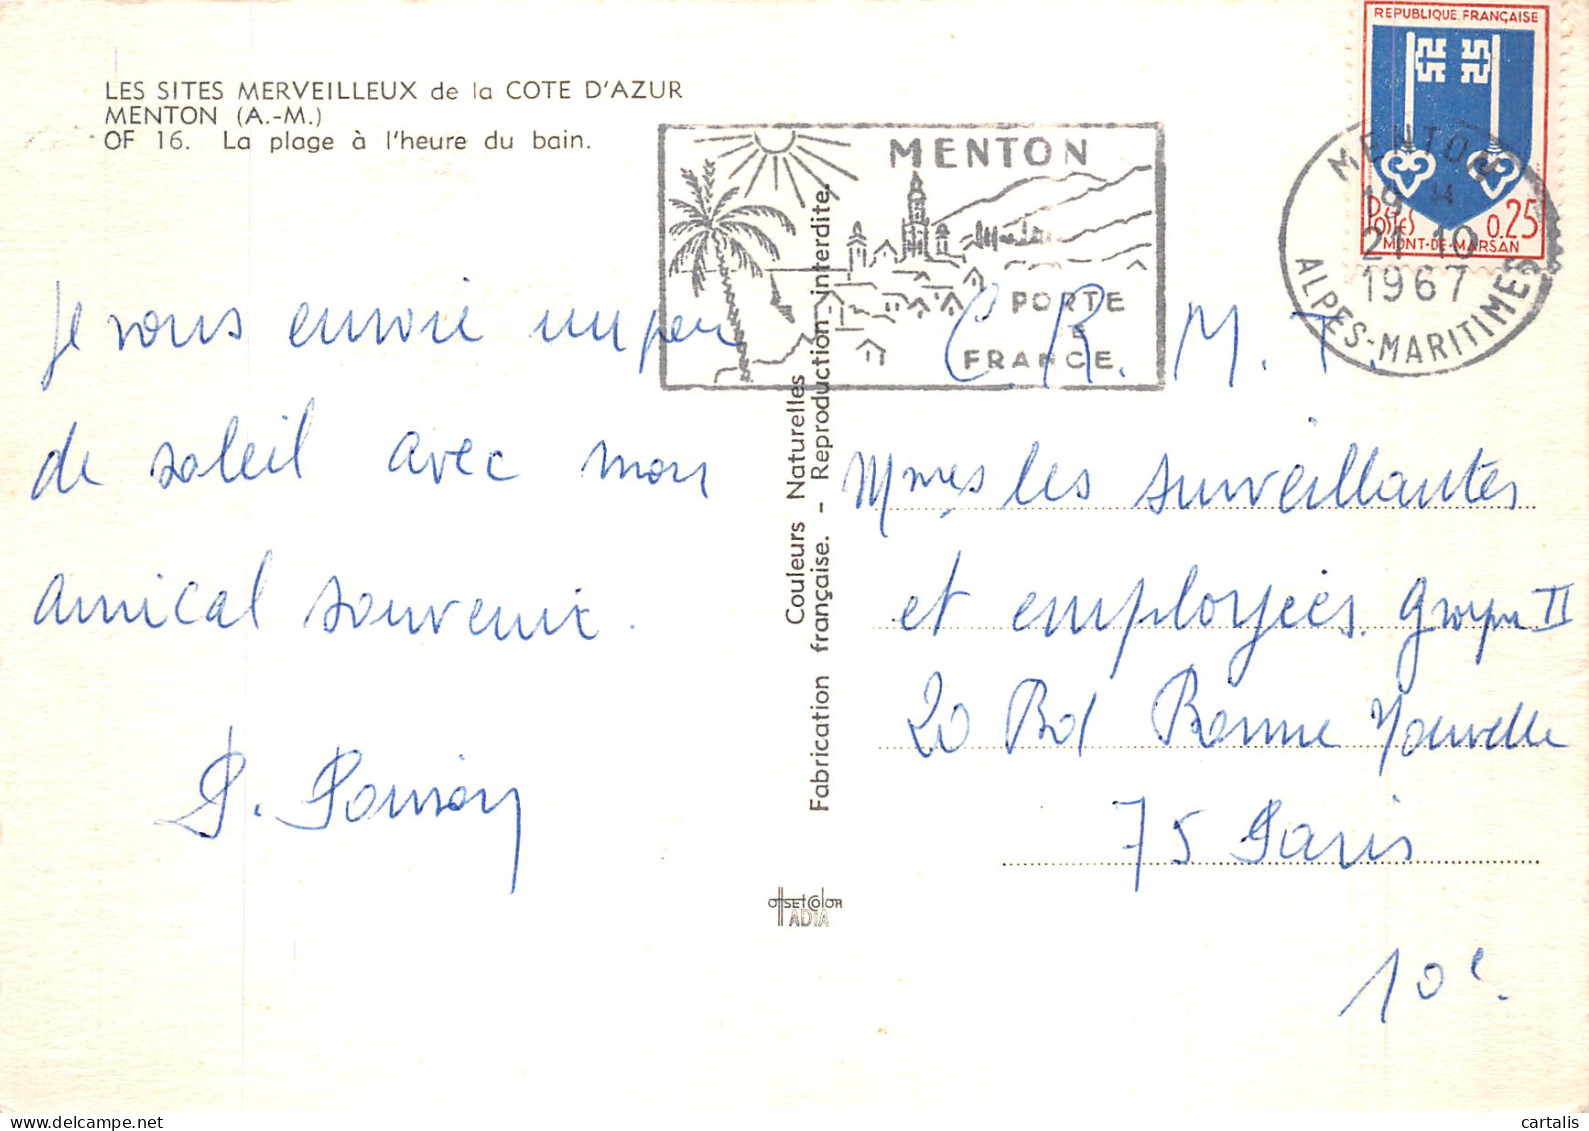 LES SITES MERVEILLEUX de la COTE D'AZUR
MENTON (A.-M.)
OF 16. La plage à l'heure du bain.
MENTON
PORTE
DE
FRANCE
REPUBLIQUE.FRANÇAISE
POSTES
0.25
MONT-DE-MARSAN
MENTON
19 H
21-10
1967
ALPES-MARITIMES
Je vous envoie un peu
de soleil avec mon
amical souvenir.
Couleurs Naturelles
Fabrication française. - Reproduction interdite.
C. R. M. T.
Mmes les surveillantes
et employées. Groupe II
20 Bd Bonne Nouvelle
75 Paris
10e.
OFFSET COLOR
IADIA
cartalis